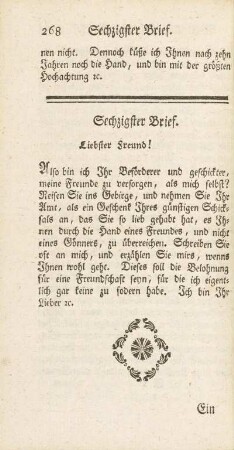 268 Sechzigster Brief.
nen nicht. Dennoch küße ich Ihnen nach zehn
Jahren noch die Hand, und bin mit der größten
Hochachtung ꝛc.
Sechzigster Brief.
Liebster Freund!
Also bin ich Ihr Beförderer und geschickter,
meine Freunde zu versorgen, als mich selbst?
Reisen Sie ins Gebirge, und nehmen Sie Ihr
Amt, als ein Geschenk Ihres günstigen Schick-
sals an, das Sie so lieb gehabt hat, es Ih-
nen durch die Hand eines Freundes, und nicht
eines Gönners, zu überreichen. Schreiben Sie
oft an mich, und erzählen Sie mirs, wenns
Ihnen wohl geht. Dieses soll die Belohnung
für eine Freundschaft seyn, für die ich eigent-
lich gar keine zu fodern habe. Ich bin Ihr
Lieber ꝛc.
Ein